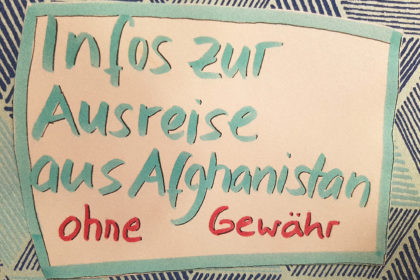 Infos zur
Ausreise
aus Afghanistan
ohne Gewähr